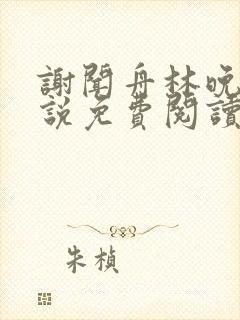 謝聞舟林晚
說免費閱讀
朱楨